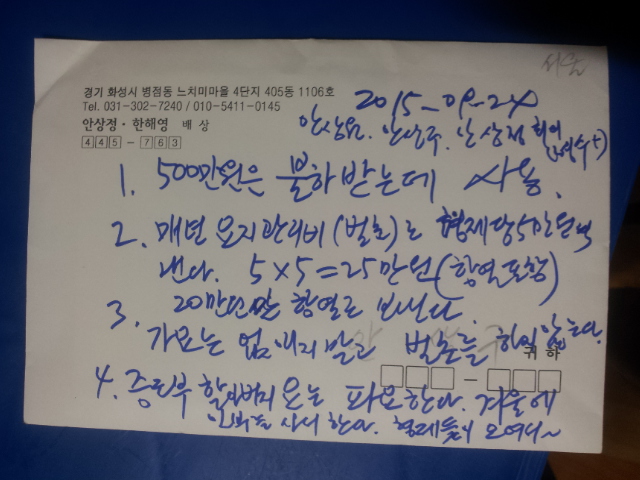 서울
경기 화성시 병점동 느치미마을 4단지 405동 1106호
Tel. 031-302-7240 / 010-5411-0145
안상정·한해영 배상
445-763
2015-09-24
안상원. 안상주. 안상정 회의
1. 500만원은 불하받는데 사용.
2. 매년 묘지관리비(벌초)로 형제당5만원씩
낸다. 5×5=25만원(항열포함)
3. 20만원만 항열로 보낸다.
가묘는 없애지 말고 벌초를 하지 않는다.
귀하
4. 증조부 할아버지 묘는 파묘한다. 겨울에
한다. 형제들이 모여서~